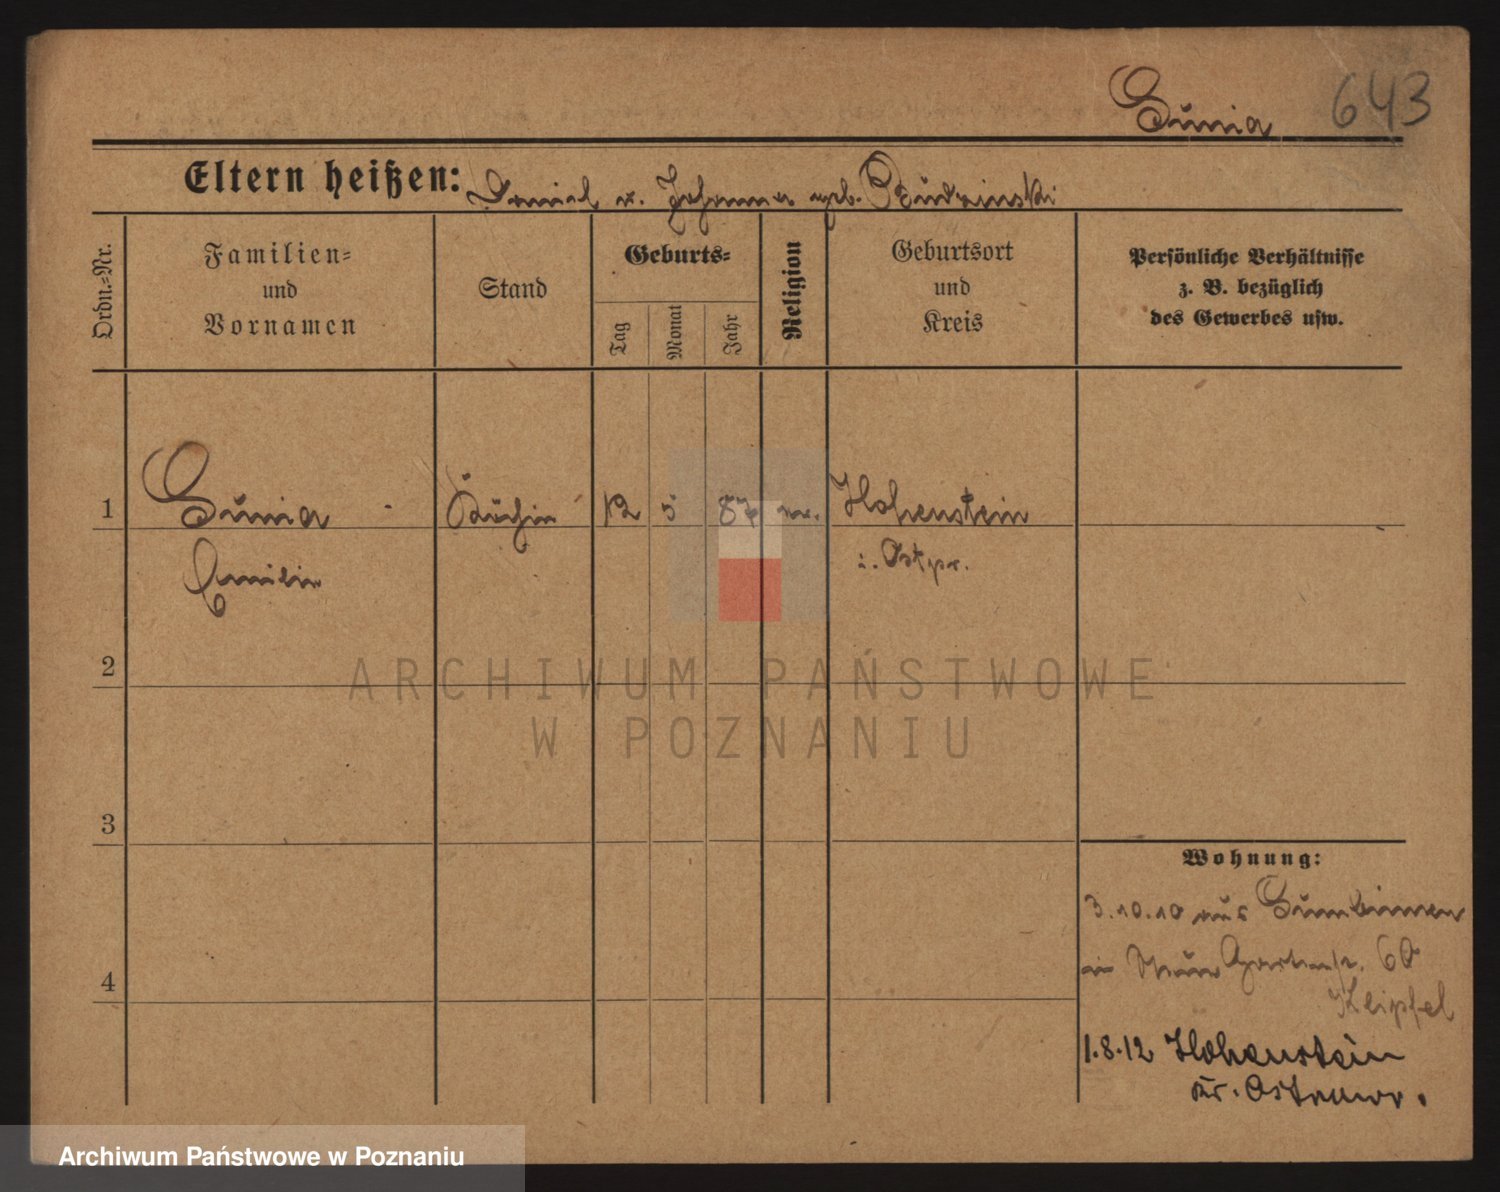 Gunia 643
Eltern heißen: Daniel u. Johanna geb. Rudzinski
Ordn.-Nr.
Familien-
und
Vornamen
Stand
Geburts-
Tag
Monat
Jahr
Religion
Geburtsort
und
Kreis
Persönliche Verhältnisse
z. B. bezüglich
des Gewerbes usw.
1 Gunia Köchin 12 5 87 ev. Hohenstein
Emilie i. Ostpr.
2
3
4
Wohnung:
3.10.10 aus Gumbinnen
in Neue Gartenstr. 60
Kleipfel
1.8.12 Hohenstein
Kr. Osterode.
ARCHIWUM PAŃSTWOWE
W POZNANIU
Archiwum Państwowe w Poznaniu